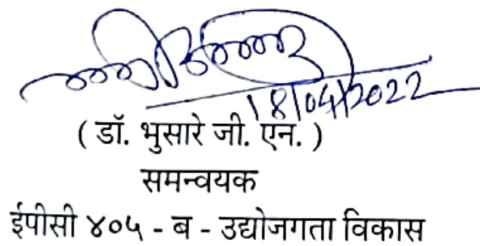 18/04/2022
( डॉ. भुसारे जी. एन. )
समन्वयक
ईपीसी ४०५ - ब - उद्योजगता विकास